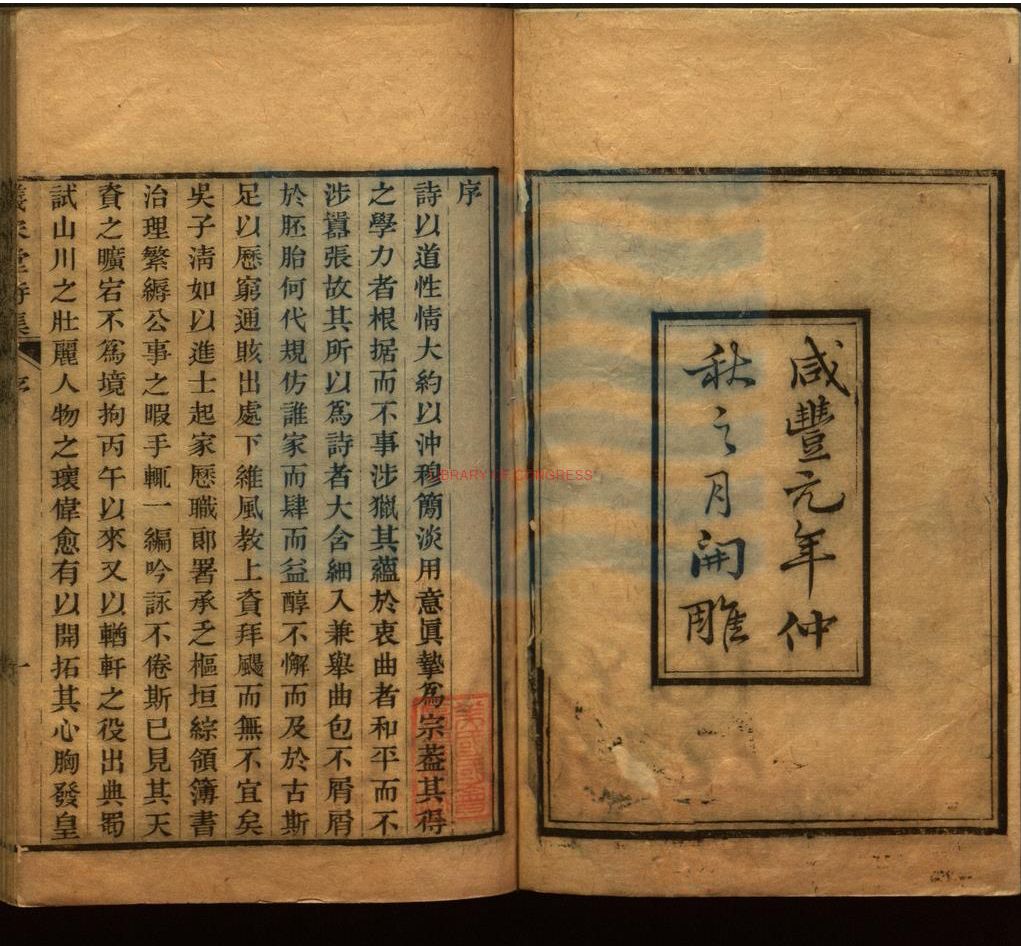 咸豐元年仲
秋之月開雕
序
詩以道性情大約以沖穆簡淡用意眞摯爲宗葢其得
之學力者根据而不事涉獵其蘊於衷曲者和平而不
涉囂張故其所以爲詩者大含細入兼舉曲包不屑屑
於胚胎何代規仿誰家而肆而益醇不懈而及於古斯
足以歷窮通賅出處下維風敎上資拜颺而無不宜矣
吳子淸如以進士起家歷職郎署承乏樞垣綜領簿書
治理繁縟公事之暇手輒一編吟詠不倦斯已見其天
資之曠宕不爲境拘丙午以來又以輶軒之役出典蜀
試山川之壯麗人物之瓌偉愈有以開拓其心胸發皇
堂詩集
序
一
LIBRARY OF CONGRESS